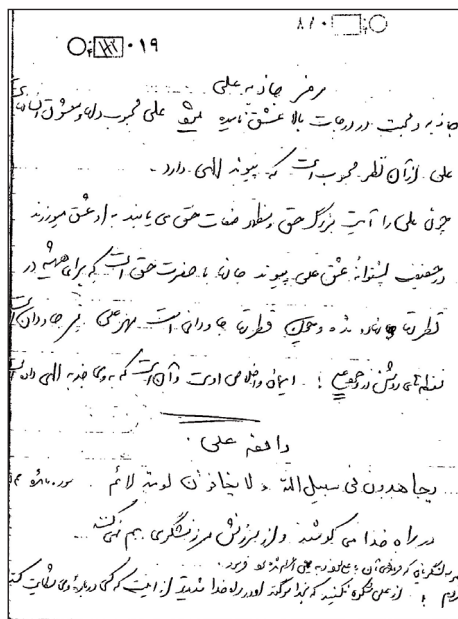 ۸/۰
۰۱۹
رمز جاذبه علی
جاذبه و محبت در درجات بالا عشق نامیده میشود علی محبوب دلها و معشوق انسانهاست
علی از آن نظر محبوب است که پیوند الهی دارد.
چون علی را آیت بزرگ حق و مظهر صفات حق می یابند به او عشق میورزند
در حقیقت پشتوانه عشق علی پیوند جانها با حضرت حق است که برای همیشه در
فطرتها نهاده شده و چون فطرتها جاودانی است مهر علی نیز جاودان است
نقطه های روشن در وجود علی! ایمان و اخلاص اوست و آن است که به وی جذبه الهی داده است
دافعه علی
یجاهدون فی سبیل الله و لا یخافون لومة لائم. سوره مائده
در راه خدا می کوشند و از سرزنش سرزنشگری بیم نمی کنند
از علی شکوه نکنید که بخدا سوگند او در راه خدا شدیدتر از این است که کسی درباره وی شکایت کند